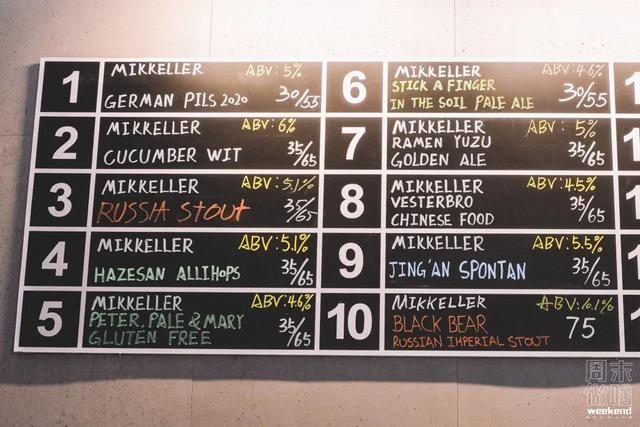 1
MIKKELLER ABV: 5%
GERMAN PILS 2020 30/55
2
MIKKELLER ABV: 6%
CUCUMBER WIT 35/65
3
MIKKELLER ABV: 5.1%
RUSSIA STOUT 35/65
4
MIKKELLER ABV: 5.1%
HAZESAN ALLIHOPS 35/65
5
MIKKELLER ABV: 4.6%
PETER, PALE & MARY
GLUTEN FREE 35/65
6
MIKKELLER ABV: 4.6%
STICK A FINGER
IN THE SOIL PALE ALE 30/55
7
MIKKELLER ABV: 5%
RAMEN YUZU
GOLDEN ALE 35/65
8
MIKKELLER ABV: 4.5%
VESTERBRO
CHINESE FOOD 35/65
9
MIKKELLER ABV: 5.5%
JING'AN SPONTAN 35/65
10
MIKKELLER ABV: 10.1%
BLACK BEAR 75
RUSSIAN IMPERIAL STOUT
周末
做啥
weekend